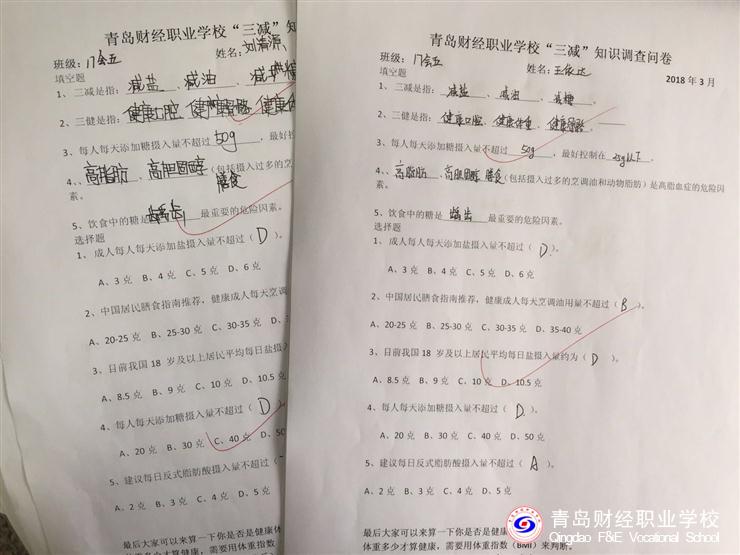 青岛财经职业学校“三减”知
班级：门会五 姓名：刘清源
填空题
1、三减是指：减盐、减油、减
2、三健是指：健康口腔 健康骨骼 健康体
3、每人每天添加糖摄入量不超过 50g ，最好控
4、、高脂肪、高胆固醇膳食（包括摄入过多的烹
素。
5、饮食中的糖是 龋齿 最重要的危险因素。
选择题
1、成人每人每天添加盐摄入量不超过（ D ）。
A、3 克 B、4 克 C、5 克 D、6 克
2、中国居民膳食指南推荐，健康成人每天烹
A、20-25 B、25-30 C、30-35 D、
3、目前我国 18 岁及以上居民平均每日盐摄入
A、8.5 克 B、9 克 C、10 克 D、10.5
4、每人每天添加糖摄入量不超过（ D ）
A、20 克 B、30 克 C、40 克 D、50
5、建议每日反式脂肪酸摄入量不超过（
A、2 克 B、3 克 C、4 克 D、5 克
最后大家可以来算一下你是否是健康体
体重多少才算健康，需要用体重指数
青岛财经职业学校“三减”知识调查问卷
班级：门会五 姓名：王依达 2018 年 3 月
填空题
1、三减是指：减盐、减油、减糖。
2、三健是指：健康口腔、健康体重、健康骨骼
3、每人每天添加糖摄入量不超过 50g ，最好控制在 25g以下。
4、、高脂肪、高胆固醇 膳食（包括摄入过多的烹调油和动物脂肪）是高脂血症的危险因
素。
5、饮食中的糖是 龋齿 最重要的危险因素。
选择题
1、成人每人每天添加盐摄入量不超过（ D ）。
A、3 克 B、4 克 C、5 克 D、6 克
2、中国居民膳食指南推荐，健康成人每天烹调油用量不超过（ B ）。
A、20-25 B、25-30 C、30-35 D、35-40 克
3、目前我国 18 岁及以上居民平均每日盐摄入量约为（ D ）。
A、8.5 克 B、9 克 C、10 克 D、10.5 克
4、每人每天添加糖摄入量不超过（ D ）。
A、20 克 B、30 克 C、40 克 D、50 克
5、建议每日反式脂肪酸摄入量不超过（ A ）。
A、2 克 B、3 克 C、4 克 D、5 克
最后大家可以来算一下你是
体重多少才算健康，需要用体重指数（BMI）来判断。
青岛财经职业学校
Qingdao F&E Vocational School